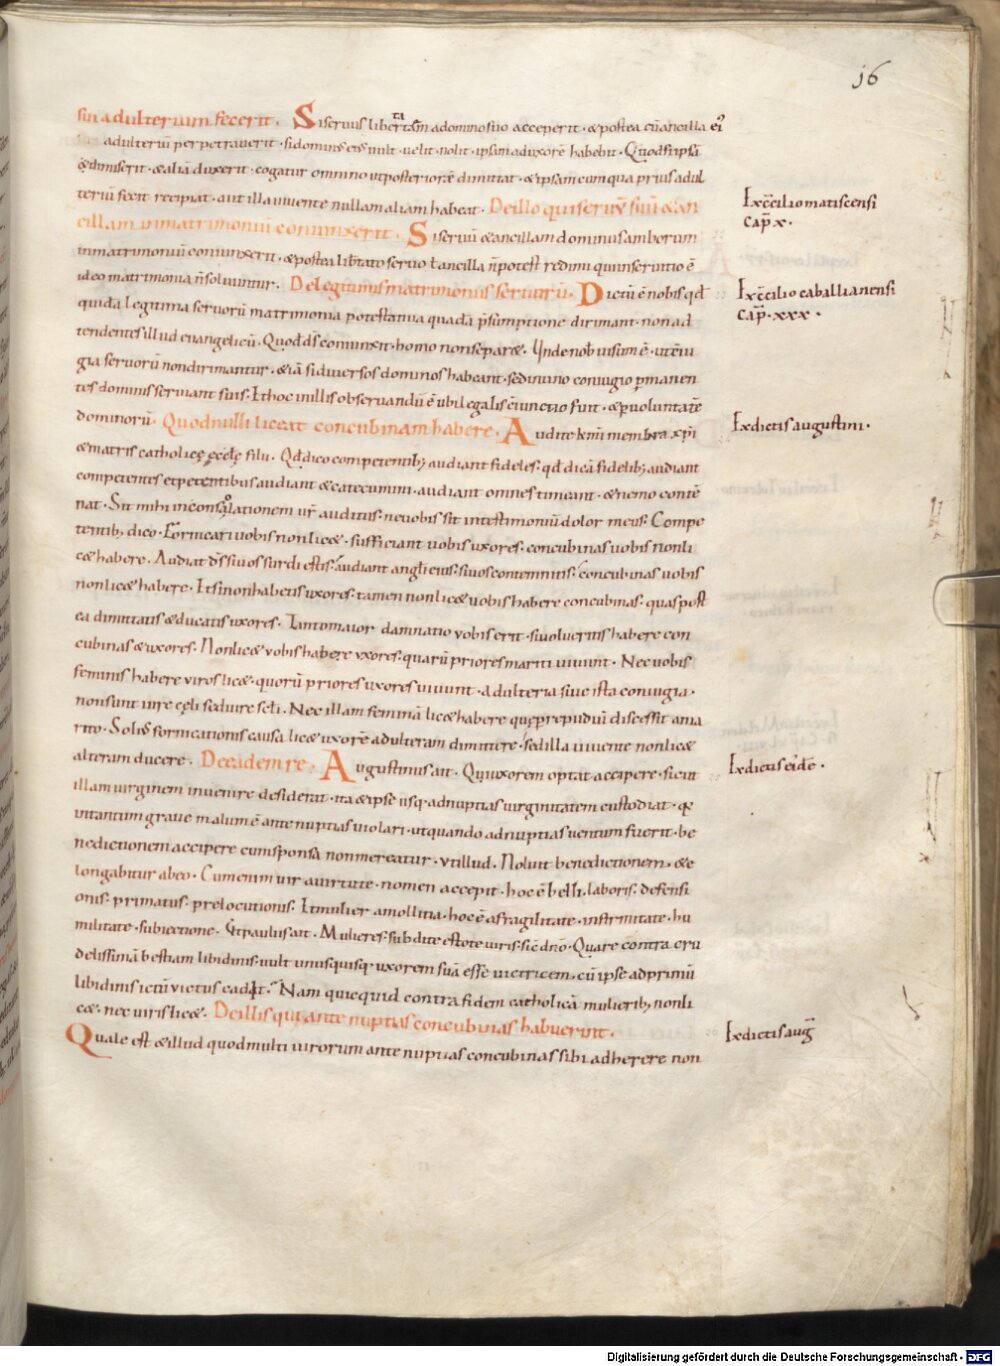 16
sui adulterium fecerit. Si seruus libertatē a domino suo acceperit · & postea cū ancilla ei᷒
adulteriū perpetrauerit · si dominꝰ eiꝰ uult · uelit · nolit · ipsam ad uxorē habebit · Quod si ipsā
& dimiserit · & aliā duxerit · cogatur omnino ut posteriorē dimittat · & ipsam cum qua prius adul
teriū fecit recipiat · aut illa uiuente nullam aliam habeat. De illo qui seruū suū & an
Ex c̄cilio matiscensi
cap̄ x.
cillam in matrimoniū coniunxerit. Si seruū & ancillam dominus amborum
in matrimoniū coniunxerit · & postea lib̄tato seruo ł ancilla n̄ potest redimi qui in seruitio ē
ideo matrimonia n̄ soluuntur. De legitimis matrimoniis seruorū. Dictū ē nobis qđ
Ex c̄cilio caballianensi
cap̄. xxx.
quidā legitima seruorū matrimonia potestatiua quadā p̄sumptione dirimant · non ad
tendentes illud euangelicū. Quod d̄s coniunxit · homo non separ&. Unde nob̄ uisum ē · ut c̄iu
gia seruorū non dirimantur · & iā si diuersos dominos habeant · sed in uno coniugio p̄manen
tes dominis seruiant suis. Et hoc in illis obseruandū ē ubi legalis c̄iunctio fuit · & p̄ uoluntatē
dominorū. Quod nulli liceat concubinam habere. Audite k̄mi membra xp̄i
Ex dictis augustini.
& matris catholicę ęcclę filii. Qđ dico competentib; audiant fideles · qđ dicā fidelib; audiant
competentes et petentibus audiant & catecumini · audiant omnes timeant · & nemo contē
nat. Sit mihi in consolationem ur̄ auditus · ne uobis sit in testimoniū dolor meus. Compe
tentib; dico. Fornicari uobis non lic& · sufficiant uobis uxores · concubinas uobis non li
c& habere. Audiat d̄s si uos surdi estis · audiant angli eius · si uos contemnitis. concubinas uobis
non lic& habere. Et si non habetis uxores · tamen non lic& uobis habere concubinas · quas post
ea dimittatis & ducatis uxores. Tanto maior damnatio vobis erit · si uolueritis habere con
cubinas & uxores. Non lic& vobis habere vxores · quarū priores mariti uiuunt. Nec uobis
feminis habere uiros lic& · quorū priores uxores uiuunt. adulteria sunt ista coniugia.
non sunt iure cęli sed iure scl̄i. Nec illam feminā lic& habere quę p repudiū discessit a ma
rito. Soliꝰ fornicationis causa lic& uxorē adulteram dimittere · sed illa uiuente non lic&
alteram ducere. De eadem re. Augustinus ait. Qui uxorem optat accipere · sicut
Ex dictis eidē.
illam uirginem inuenire desiderat · ita & ipse usq; ad nuptias uirginitatem custodiat · qr̄
in tantum graue malum ē ante nuptias uiolari · ut quando ad nuptias uentum fuerit · be
nedictionem accipere cum sponsa non mereatur · vt illud. Noluit benedictionem · & e
longabitur ab eo. Cum enim uir a uirtute · nomen accepit · hoc ē belli · laboris · defensi
onis · primatus · prelocutionis. Et mulier a mollitia · hoc ē a fragilitate · infirmitate · hu
militate · subiectione. Ut paulus ait. Mulieres subdite estote uiris · sic dn̄o. Quare contra cru
delissimā bestiam libidinis · uult unusquisq; uxorem suā esse uictricem · cū ipse ad primū
libidinis ictū victus cadit. Nam quicquid contra fidem catholicā mulierib; non li
c& · nec uiris lic&. De illis qui ante nuptias concubinas habuerint.
Quale est & illud quod multi uirorum ante nuptias concubinas sibi adherere non
Ex dictis auḡ
Digitalisierung gefördert durch die Deutsche Forschungsgemeinschaft - DFG